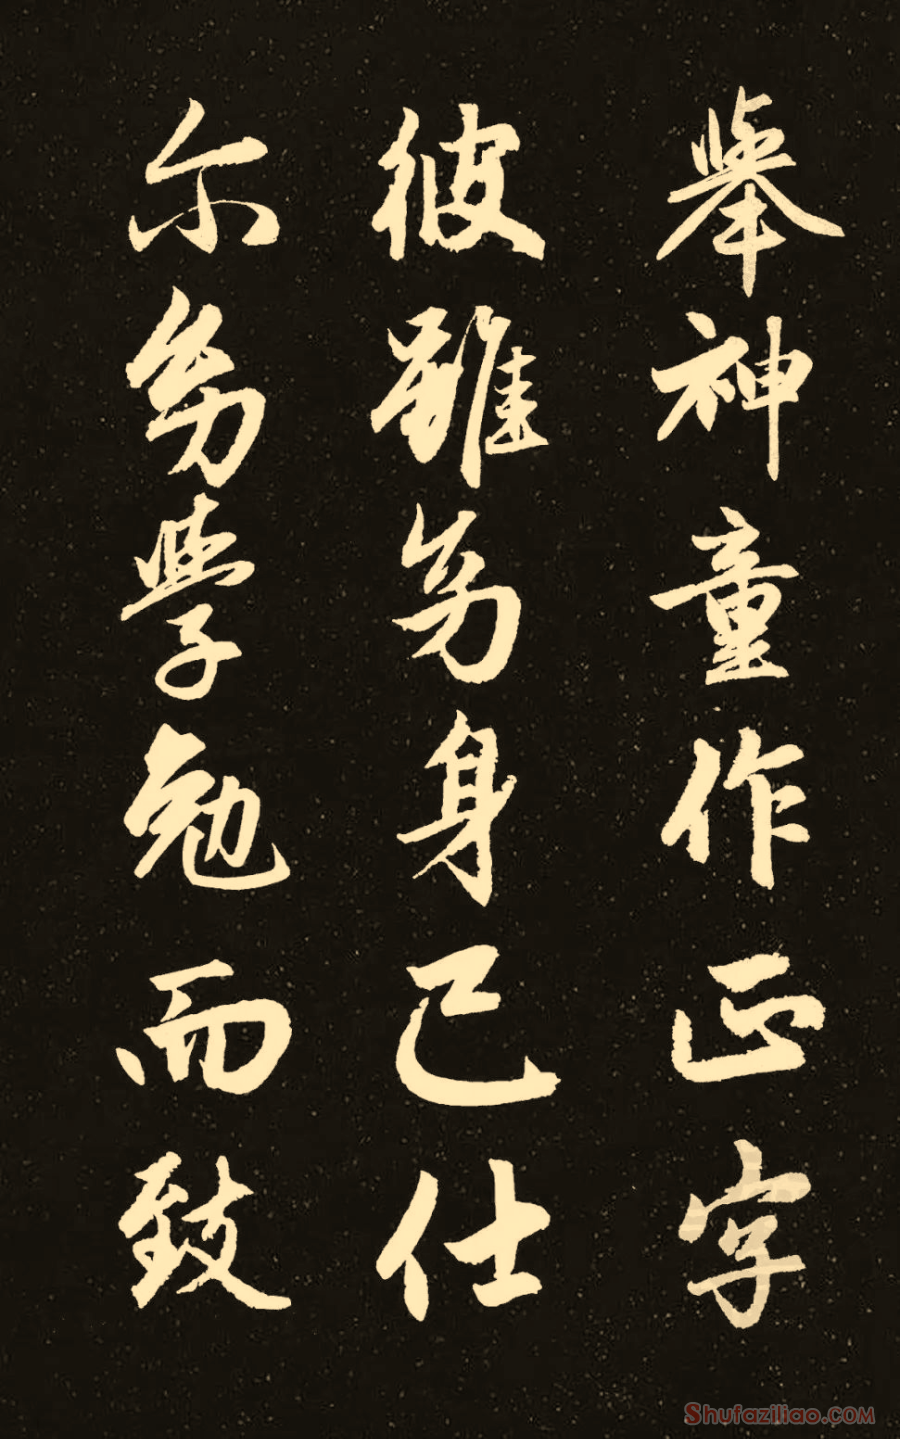 舉神童作正字
彼雖幼身已仕
尔幼學勉而致
Shufaziliao.COM